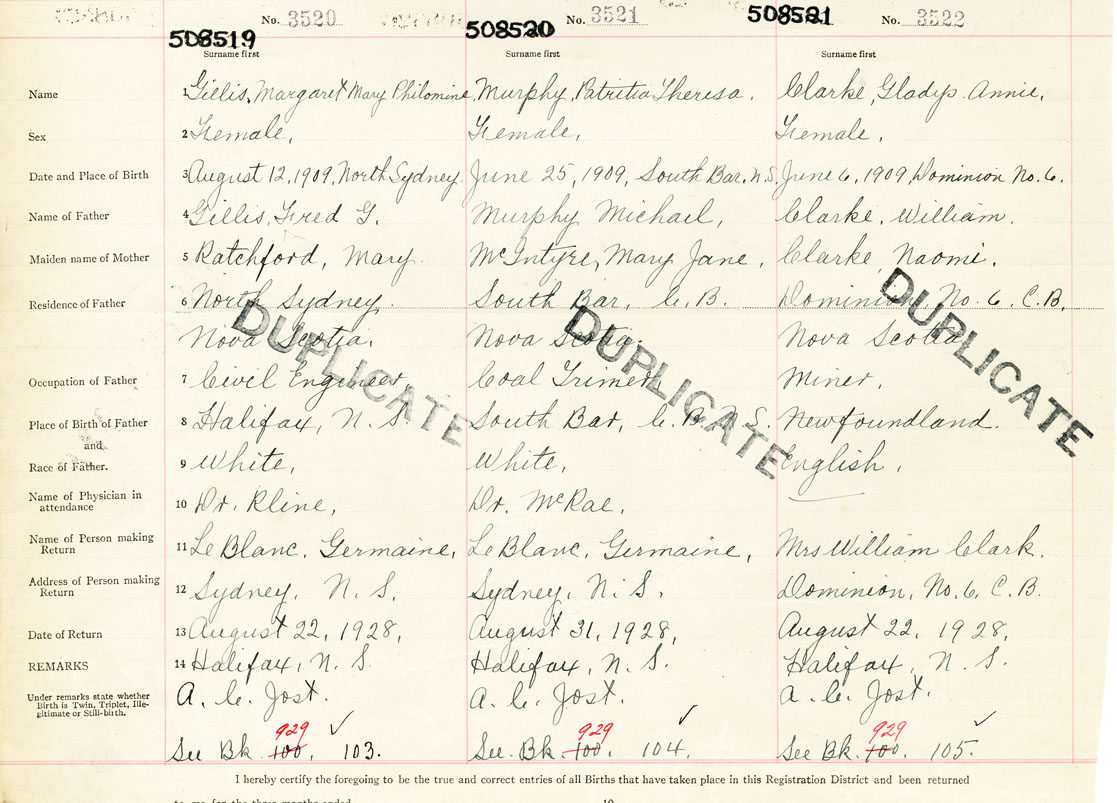 No. 3520 No. 3521 No. 3522
508519 508520 508521
Surname first Surname first Surname first
Name 1 Gillis, Margaret Mary Philomine Murphy, Patritia Theresa. Clarke, Gladys Annie.
Sex 2 Female, Female, Female,
Date and Place of Birth 3 August 12, 1909, North Sydney. June 25, 1909, South Bar, N.S. June 6, 1909, Dominion No. 6.
Name of Father 4 Gillis, Fred G. Murphy Michael, Clarke, William.
Maiden name of Mother 5 Ratchford, Mary. McIntyre, Mary Jane, Clarke, Naomi.
Residence of Father 6 North Sydney, South Bar, C.B. Dominion, No. 6, C.B.
Nova Scotia. Nova Scotia. Nova Scotia
DUPLICATE DUPLICATE DUPLICATE
Occupation of Father 7 Civel Engineer Coal Trimer Miner,
Place of Birth of Father 8 Halifax, N.S. South Bar, C.B. N.S. Newfoundland.
and
Race of Father. 9 White, White, English,
Name of Physician in
attendance 10 Dr. Kline, Dr. McRae,
Name of Person making
Return 11 LeBlanc, Germaine, LeBlanc, Germaine, Mrs William Clark.
Address of Person making
Return 12 Sydney, N.S. Sydney, N.S. Dominion, No. 6, C.B.
Date of Return 13 August 22, 1928, August 31, 1928, August 22, 1928,
REMARKS 14 Halifax, N.S. Halifax, N.S. Halifax, N.S.
Under remarks state whether
Birth is Twin, Triplet, Ille-
gitimate or Still-birth.
A. C. Jost. A. C. Jost. A. C. Jost.
929 929 929
See Bk 100, 103. See Bk 100, 104. See Bk. 100. 105.
I hereby certify the foregoing to be the true and correct entries of all Births that have taken place in this Registration District and been returned
to me for the three months ended 19